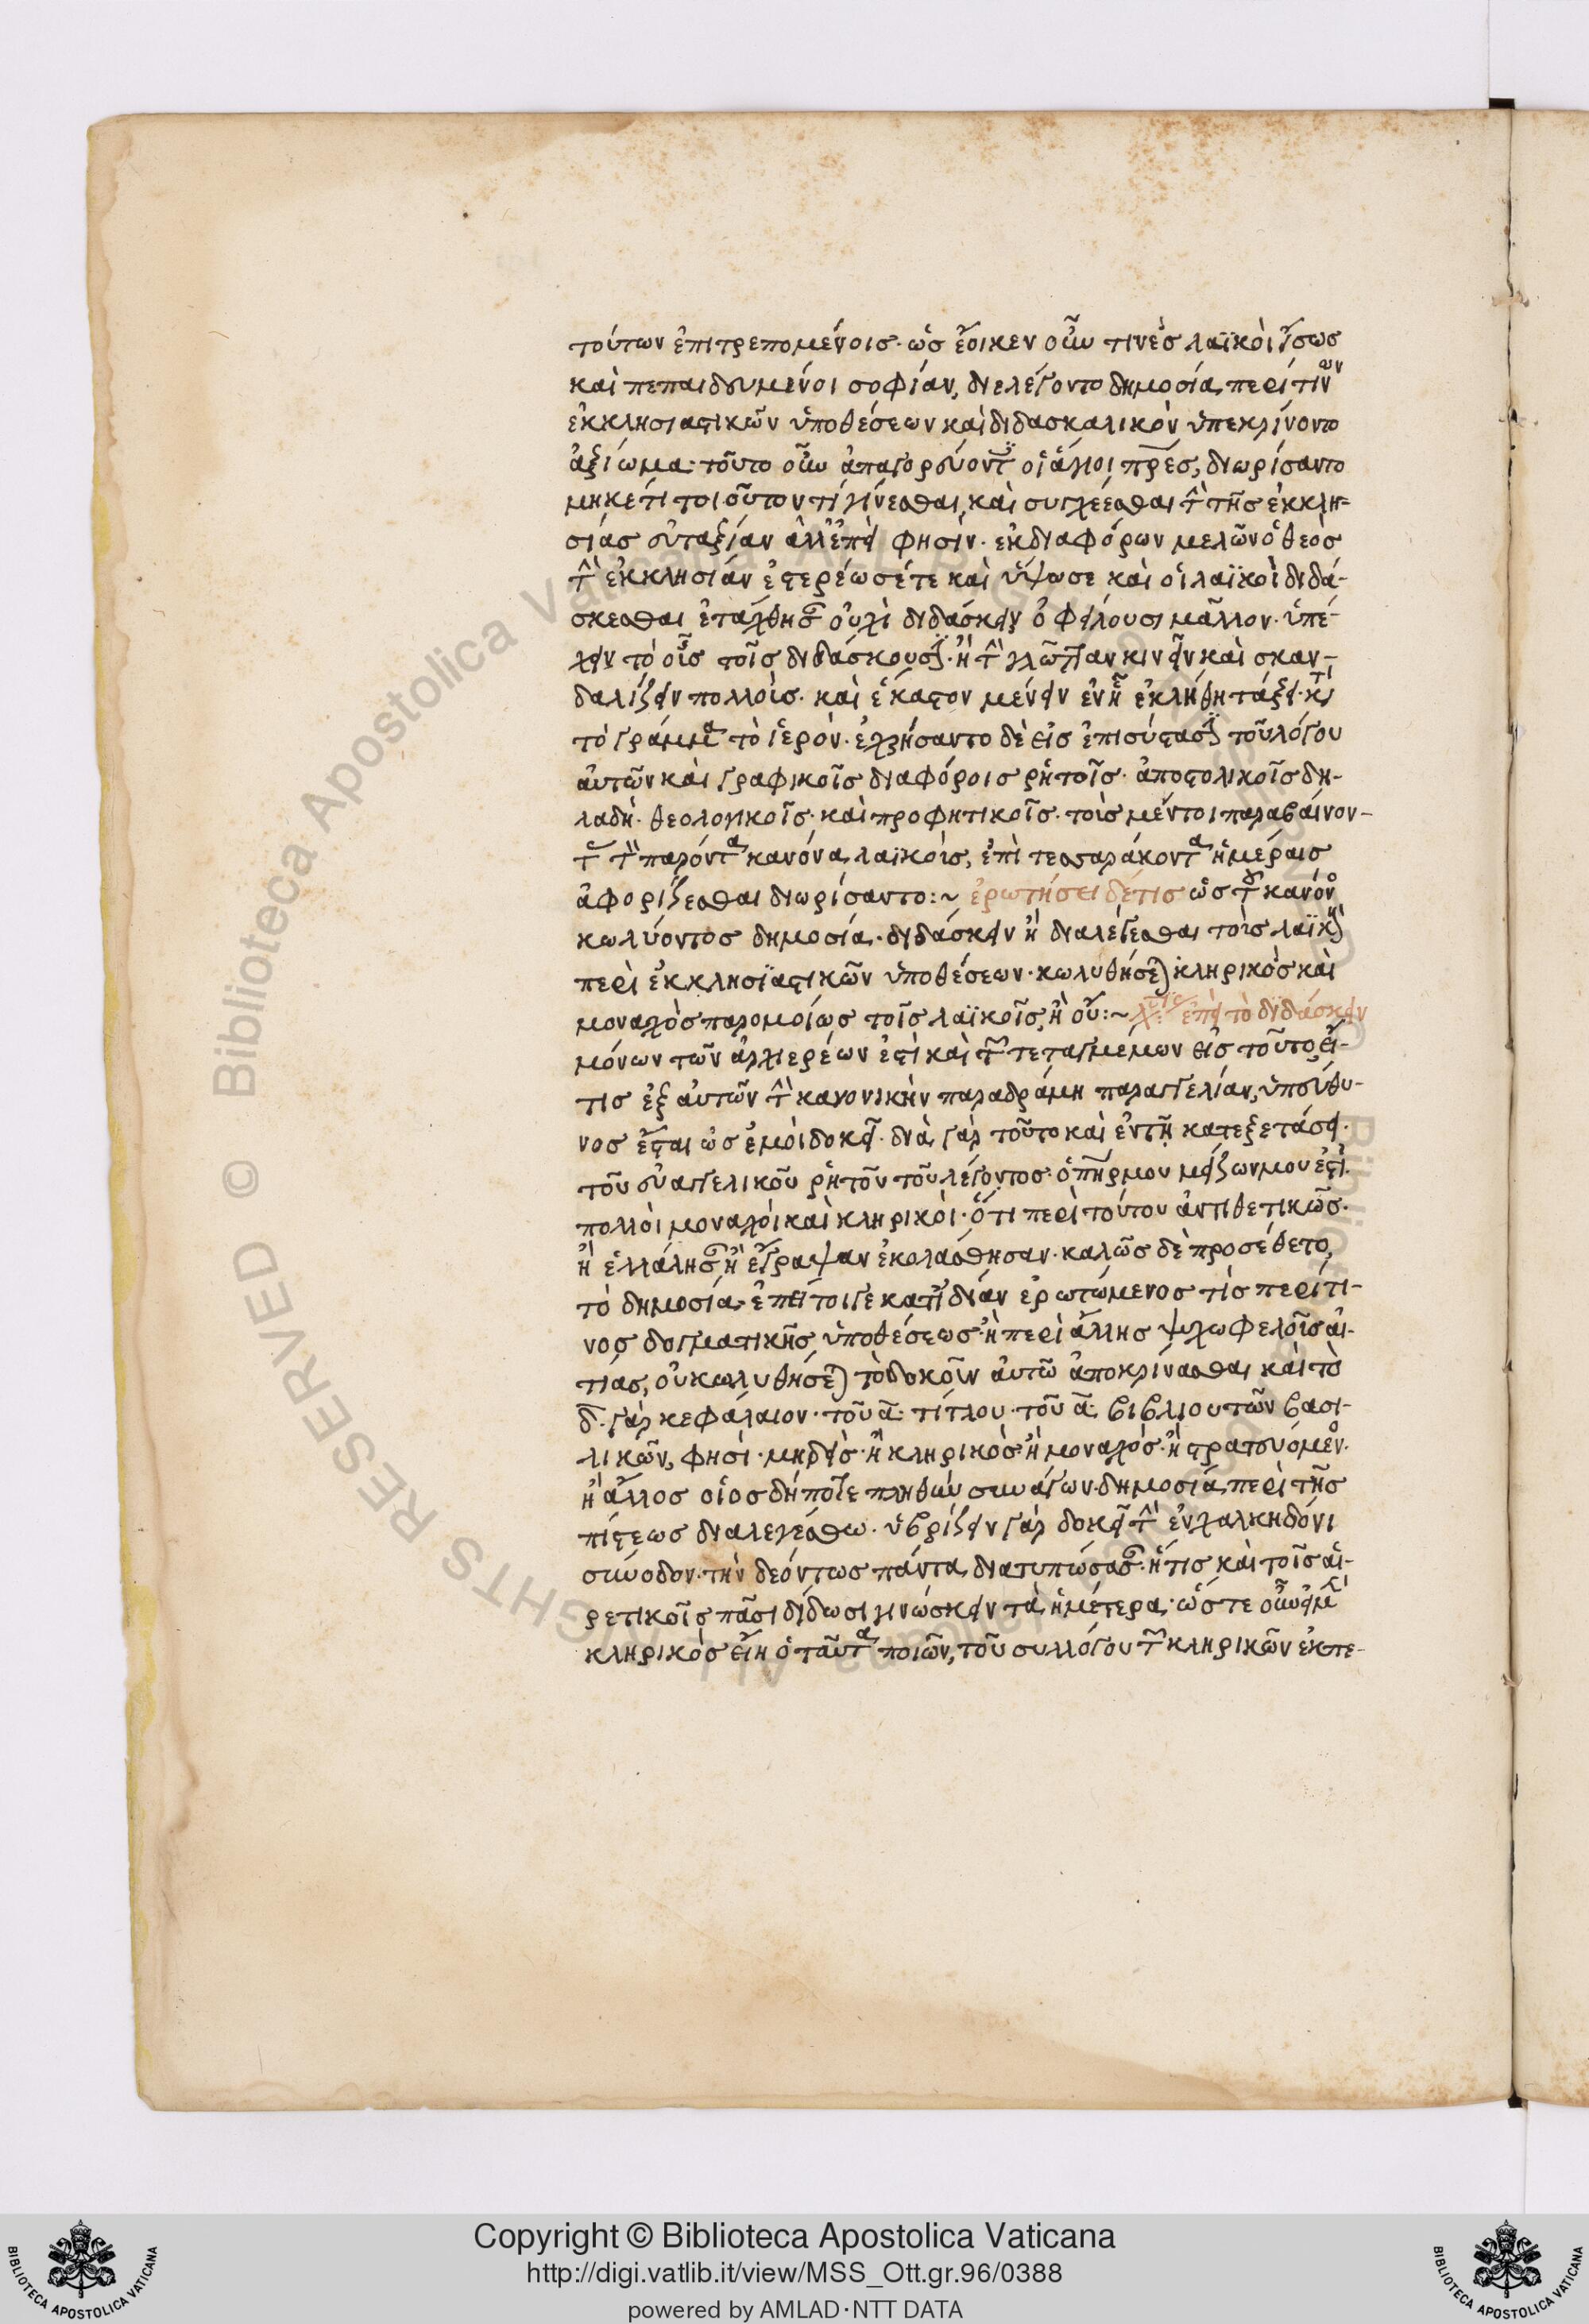 τούτων ἐπιτρεπομένοις· ὡς ἔοικεν οὖν τινὲς λαϊκοὶ ἴσως
καὶ πεπαιδευμένοι σοφίαν, διελέγοντο δημοσία περί τινων
ἐκκλησιαστικῶν ὑποθέσεων καὶ διδασκαλικὸν ὑπεκρίνοντο
ἀξίωμα· τοῦτο οὖν ἀπαγορεύοντες οἱ ἅγιοι πρες, διωρίσαντο
μηκέτι τοιοῦτον τί γίνεσθαι, καὶ συγχέεσθαι τὴν τῆς ἐκκλη-
σίας εὐταξίαν ἀλλ' ἐπεὶ φησίν· ἐκ διαφόρων μελῶν ὁ θεὸς
τὴν ἐκκλησίαν ἐστερέωσέ τε καὶ ὕψωσε καὶ οἱ λαϊκοὶ διδά-
σκεσθαι ἐτάχθησαν οὐχὶ διδάσκειν ὀφείλουσι μᾶλλον· ὑπέ-
χειν τὸ οὖς τοῖς διδάσκουσιν· ἢ τὴν γλῶτταν κινεῖν καὶ σκαν-
δαλίζειν πολλοὺς· καὶ ἕκαστον μένειν ἐν ᾗ ἐκλήθη τάξει· κατὰ
τὸ γράμμα τὸ ἱερόν· ἐχρήσαντο δὲ εἰς ἐπισύστασιν τοῦ λόγου
αὐτῶν καὶ γραφικοῖς διαφόροις ῥητοῖς· ἀποστολικοῖς δη-
λαδὴ· θεολογικοῖς· καὶ προφητικοῖς· τοὺς μέντοι παραβαίνον-
τας τὸν παρόντα κανόνα λαϊκοὺς, ἐπὶ τεσσαράκοντα ἡμέραις
ἀφορίζεσθαι διωρίσαντο:~ ἐρωτήσει δέ τις ὡς τοῦ κανόνος
κωλύοντος δημοσία διδάσκειν ἢ διαλέγεσθαι τοὺς λαϊκοὺς
περὶ ἐκκλησιαστικῶν ὑποθέσεων· κωλυθήσεται κληρικὸς καὶ
μοναχὸς παρομοίως τοῖς λαϊκοῖς, ἢ οὔ:~ ἐπεὶ τὸ διδάσκειν
μόνων τῶν ἀρχιερέων ἐστὶ καὶ τῶν τεταγμένων εἰς τοῦτο εἴ-
τις ἐξ αὐτῶν τὴν κανονικὴν παραδράμη παραγγελίαν, ὑπεύθυ-
νος ἔσται ὡς ἐμοὶ δοκεῖ· διὰ γὰρ τοῦτο καὶ ἐν τῇ κατεξετάσει·
τοῦ εὐαγγελικοῦ ῥητοῦ τοῦ λέγοντος· ὁ πηρ μου μείζων μου ἐστὶ·
πολλοὶ μοναχοὶ καὶ κληρικοὶ· ὅτι περὶ τούτου ἀντιθετικῶς·
ἢ ἐλλάλησαν ἢ ἔγραψαν ἐκολάσθησαν· καλῶς δὲ προσέθετο,
τὸ δημοσία· ἐπεί τοιγε κατιδίαν ἐρωτώμενος τὶς περί τι-
νος δογματικῆς ὑποθέσεως· ἢ περὶ ἄλλης ψυχωφελοῦς αἰ-
τίας, οὐ κωλυθήσεται τὸ δοκοῦν αὐτῶ ἀποκρίνασθαι καὶ τὸ
δ· γὰρ κεφάλαιον· τοῦ α· τίτλου· τοῦ α· βιβλίου τῶν βασι-
λικῶν, φησὶ· μηδεὶς· ἢ κληρικὸς· ἢ μοναχὸς· ἢ στρατευόμενος·
ἢ ἄλλος οἷος δήποτε πλῆθος συνάγων δημοσία περὶ τῆς
πίστεως διαλεγέσθω· ὑβρίζειν γὰρ δοκεῖ τὴν ἐν χαλκηδόνι
σύνοδον· τὴν δεόντως πάντα διατυπώσασαν· ἥτις καὶ τοῖς αἱ-
ρετικοῖς πᾶσι δίδωσι γινώσκειν τὰ ἡμέτερα· ὥστε οὖν εἰ μὲν
κληρικὸς εἴη ὁ ταῦτα ποιῶν, τοῦ συλλόγου τῶν κληρικῶν ἐκπε-
© Biblioteca Apostolica Vaticana ALL RIGHTS RESERVED
Copyright © Biblioteca Apostolica Vaticana
http://digi.vatlib.it/view/MSS_Ott.gr.96/0388
powered by AMLAD·NTT DATA
BIBLIOTECA APOSTOLICA VATICANA
BIBLIOTECA APOSTOLICA VATICANA